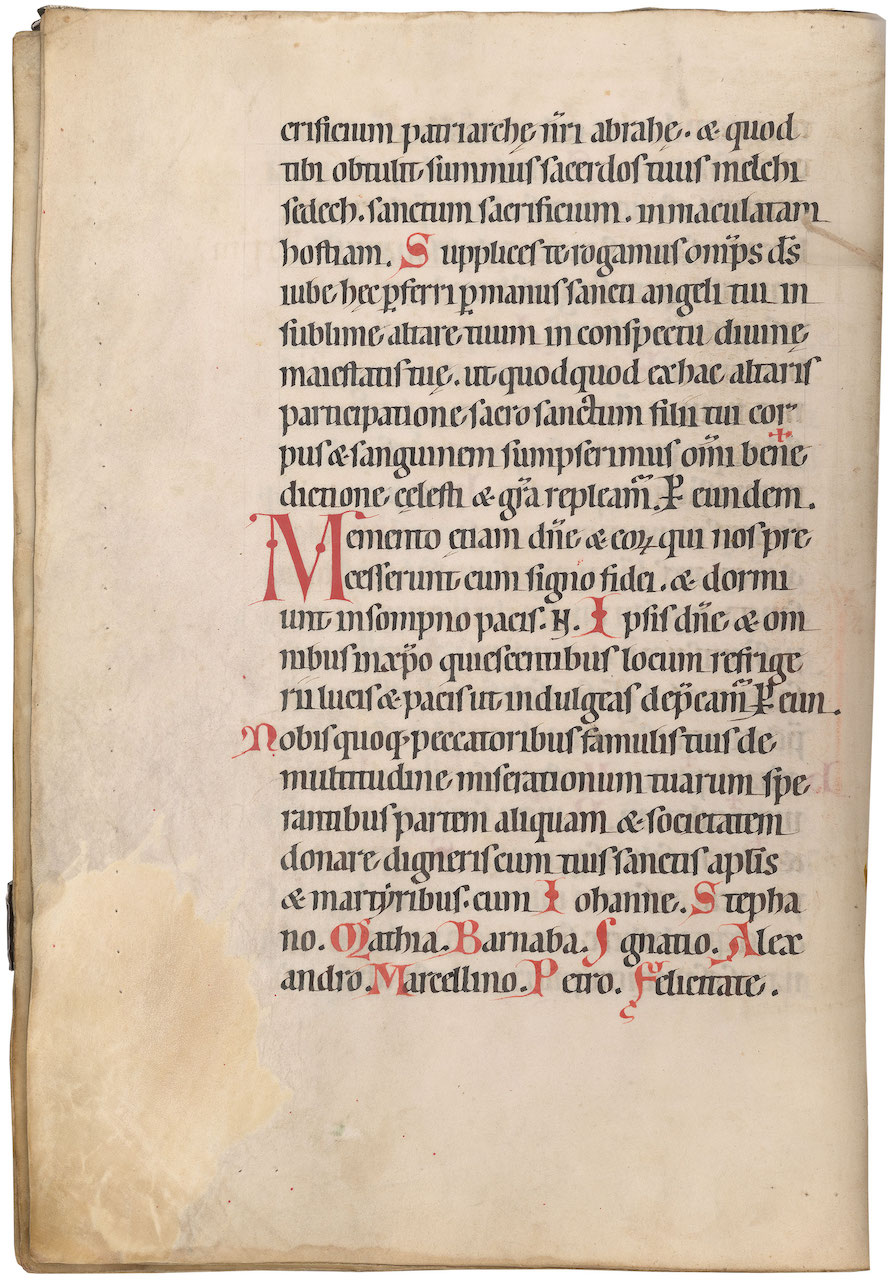 crificium patriarchę nr̄i abrahę. & quod
tibi obtulit summus sacerdos tuus melchi
sedech. sanctum sacrificium. inmaculatam
hostiam. Supplices te rogamus omīps ds̄
iube hęc ꝑferri ꝑ manus sancti angeli tui in
sublime altare tuum in conspectu diuinę
maiestatis tuę. ut quodquod ex hac altaris
participatione sacrosanctum filii tui cor
pus & sanguinem sumpserimus om̄i bene✝
dictione cęlesti & gr̄a repleam̄. P̱ eundem.
Memento etiam dn̄e & eoꝝ qui nos pre
cesserunt cum signo fidei. & dormi
unt in sompno pacis. N. Ipsis dn̄e & om
nibus in xp̄o quiescentibus locum refrige
rii lucis & pacis ut indulgeas dep̄cam̄ P̱ eun.
Nobis quoq; peccatoribus famulis tuis de
multitudine miserationum tuarum spe
rantibus partem aliquam & societatem
donare digneris cum tuis sanctis ap̄lis
& martyribus. cum Iohanne. Stepha
no. Mathia. Barnaba. Ignatio. Alex
andro. Marcellino. Petro. Felicitate.